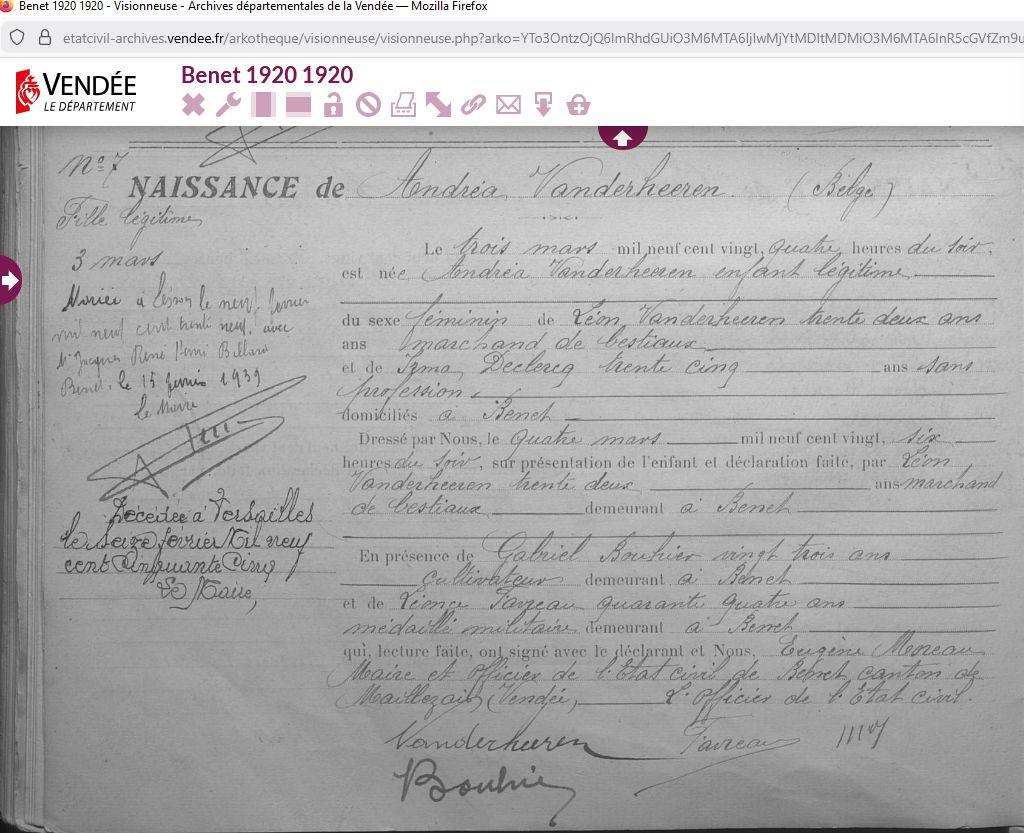 Benet 1920 1920 - Visionneuse - Archives départementales de la Vendée — Mozilla Firefox
etatcivil-archives.vendee.fr/arkotheque/visionneuse/visionneuse.php?arko=
VENDÉE
LE DÉPARTEMENT
Benet 1920 1920
N° 7
NAISSANCE de Andréa Vanderheeren (Belge)
Fille légitime
3 mars
Mariée à Lesson le neuf février
mil neuf cent trente neuf avec
Mr Jacques René Henri Billard
Benet, le 15 février 1939
le Maire
Décédée à Versailles
le seize février Mil neuf
cent Cinquante Cinq
Le Maire,
Le trois mars mil neuf cent vingt, quatre heures du soir,
est née Andréa Vanderheeren enfant légitime
du sexe féminin de Léon Vanderheeren trente deux ans
ans marchand de bestiaux
et de Irma Declercq trente cinq ans sans
profession
domiciliés à Benet
Dressé par Nous, le quatre mars mil neuf cent vingt, six
heures du soir, sur présentation de l'enfant et déclaration faite, par Léon
Vanderheeren trente deux ans marchand
de bestiaux demeurant à Benet
En présence de Gabriel Bouhier vingt trois ans
cultivateur demeurant à Benet
et de Léonce Favreau quarante quatre ans
médaillé militaire demeurant à Benet
qui, lecture faite, ont signé avec le déclarant et Nous, Eugène Moreau
Maire et officier de l'Etat civil de Benet, canton de
Maillezais (Vendée), L'officier de l'Etat civil.
Vanderheeren Favreau
Bouhier